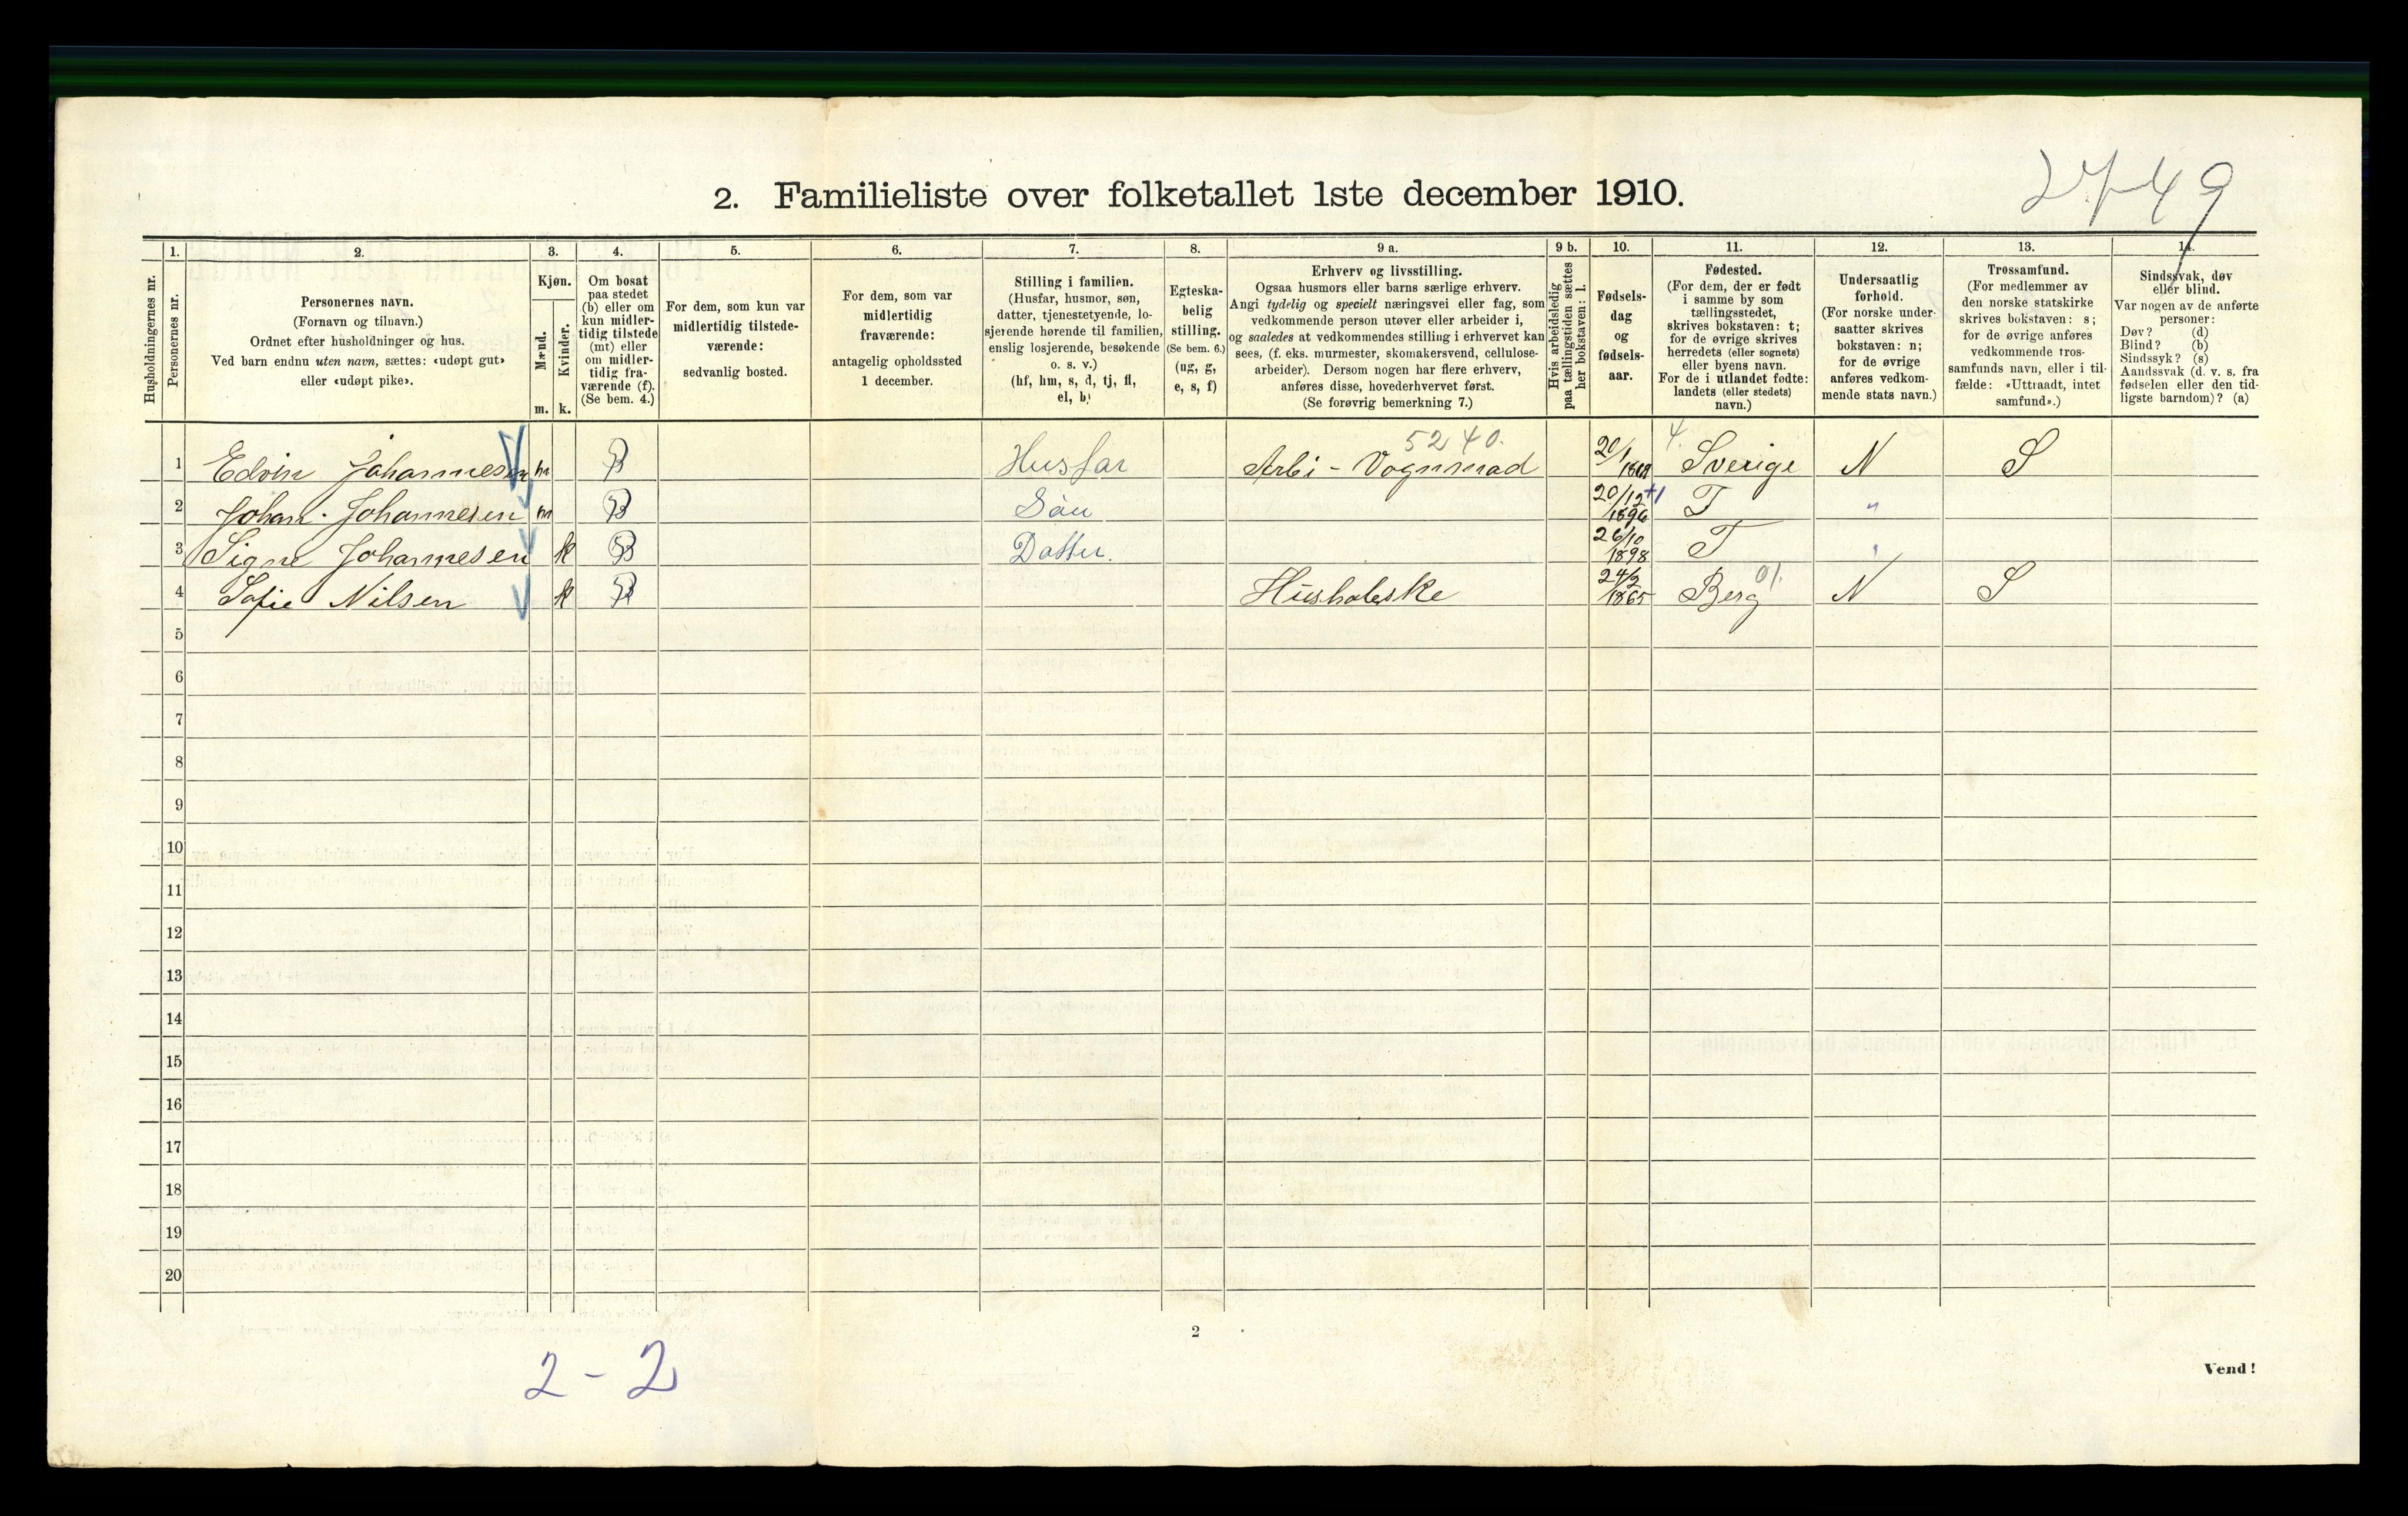 2749
2. Familieliste over folketallet 1ste december 1910.
1. 2. 3. 4. 5. 6. 7. 8. 9 a. 9 b. 10. 11. 12. 13. 14.
Husholdningernes nr.
Personernes nr.
Personernes navn.
(Fornavn og tilnavn.)
Ordnet efter husholdninger og hus.
Ved barn endnu uten navn, sættes: «udøpt gut»
eller «udøpt pike».
Kjøn.
Mænd.
Kvinder.
m. k.
Om bosat
paa stedet
(b) eller om
kun midler-
tidig tilstede
(mt) eller
om midler-
tidig fra-
værende (f).
(Se bem. 4.)
For dem, som kun var
midlertidig tilstede-
værende:
sedvanlig bosted.
For dem, som var
midlertidig
fraværende:
antagelig opholdssted
1 december.
Stilling i familien.
(Husfar, husmor, søn,
datter, tjenestetyende, lo-
sjerende hørende til familien,
enslig losjerende, besøkende
o. s. v.)
(hf, hm, s, d, tj, fl,
el, b)
Egteska-
belig
stilling.
(Se bem. 6.)
(ug, g,
e, s, f)
Erhverv og livsstilling.
Ogsaa husmors eller barns særlige erhverv.
Angi tydelig og specielt næringsvei eller fag, som
vedkommende person utøver eller arbeider i,
og saaledes at vedkommendes stilling i erhvervet kan
sees, (f. eks. murmester, skomakersvend, cellulose-
arbeider). Dersom nogen har flere erhverv,
anføres disse, hovederhvervet først.
(Se forøvrig bemerkning 7.)
Hvis arbeidsledig
paa tællingstiden sættes
her bokstaven: l.
Fødsels-
dag
og
fødsels-
aar.
Fødested.
(For dem, der er født
i samme by som
tællingsstedet,
skrives bokstaven: t;
for de øvrige skrives
herredets (eller sognets)
eller byens navn.
For de i utlandet fødte:
landets (eller stedets)
navn.)
Undersaatlig
forhold.
(For norske under-
saatter skrives
bokstaven: n;
for de øvrige
anføres vedkom-
mende stats navn.)
Trossamfund.
(For medlemmer av
den norske statskirke
skrives bokstaven: s;
for de øvrige anføres
vedkommende tros-
samfunds navn, eller i til-
fælde: «Uttraadt, intet
samfund».)
Sindssvak, døv
eller blind.
Var nogen av de anførte
personer:
Døv? (d)
Blind? (b)
Sindssyk? (s)
Aandssvak (d. v. s. fra
fødselen eller den tid-
ligste barndom)? (a)
5240. 4.
1 Edvin Johannesen m B Husfar Arbi - Vognmad 20/1 Sverige N S
2 Johan Johannesen m B Sön 20/12 1896 +1 T "
3 Signe Johannesen k B Datter. 26/10 1898 T "
4 Sofie Nilsen k B Husholeske 24/2 1865 Berg 01. N S
5
6
7
8
9
10
11
12
13
14
15
16
17
18
19
20
2
2 - 2
Vend!